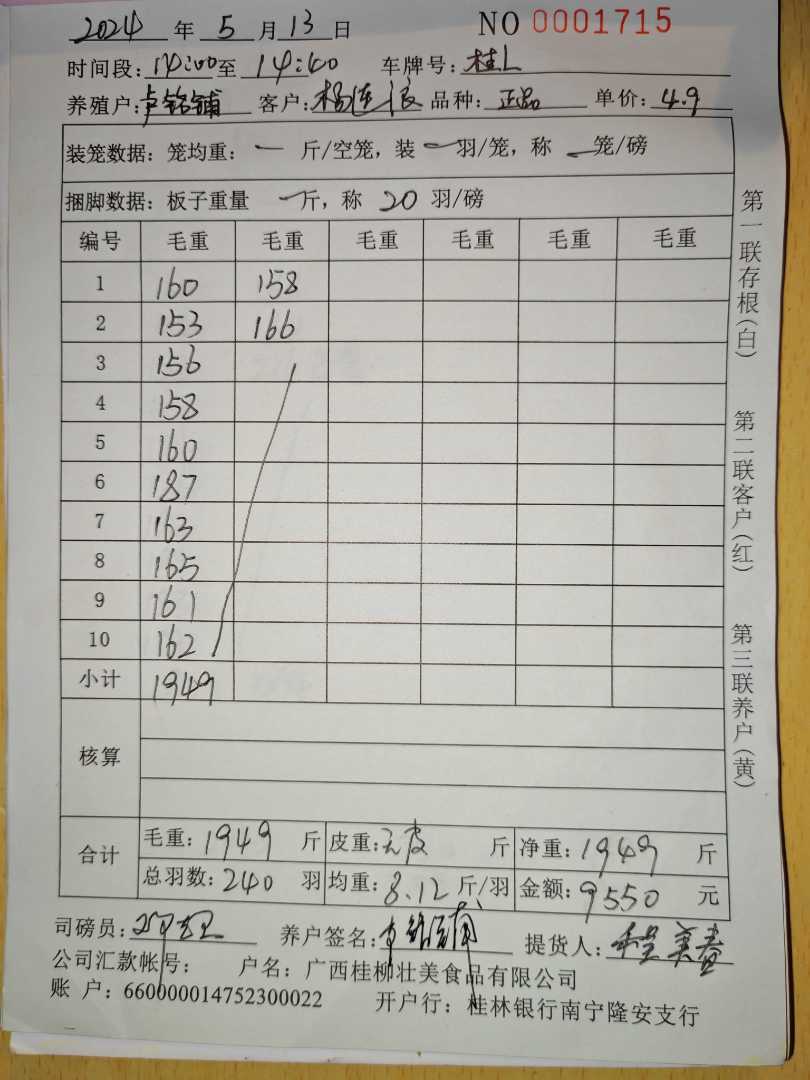 2024 年 5 月 13 日 NO 0001715
时间段: 14:00 至 14:40 车牌号: 桂L
养殖户: 卢铭铺 客户: 杨 品种: 正品 单价: 4.9
装笼数据: 笼均重: 一 斤/空笼, 装 一 羽/笼, 称 一 笼/磅
捆脚数据: 板子重量 一 斤, 称 20 羽/磅
编号 毛重 毛重 毛重 毛重 毛重 毛重
1 160 158
2 153 166
3 156
4 158
5 160
6 187
7 163
8 165
9 161
10 162
小计 1949
核算
合计 毛重: 1949 斤 皮重: 无皮 斤 净重: 1949 斤
总羽数: 240 羽 均重: 8.12 斤/羽 金额: 9550 元
司磅员: 养户签名: 提货人:
公司汇款帐号: 户名: 广西桂柳壮美食品有限公司
账 户: 660000014752300022 开户行: 桂林银行南宁隆安支行
第一联存根(白)
第二联客户(红)
第三联养户(黄)